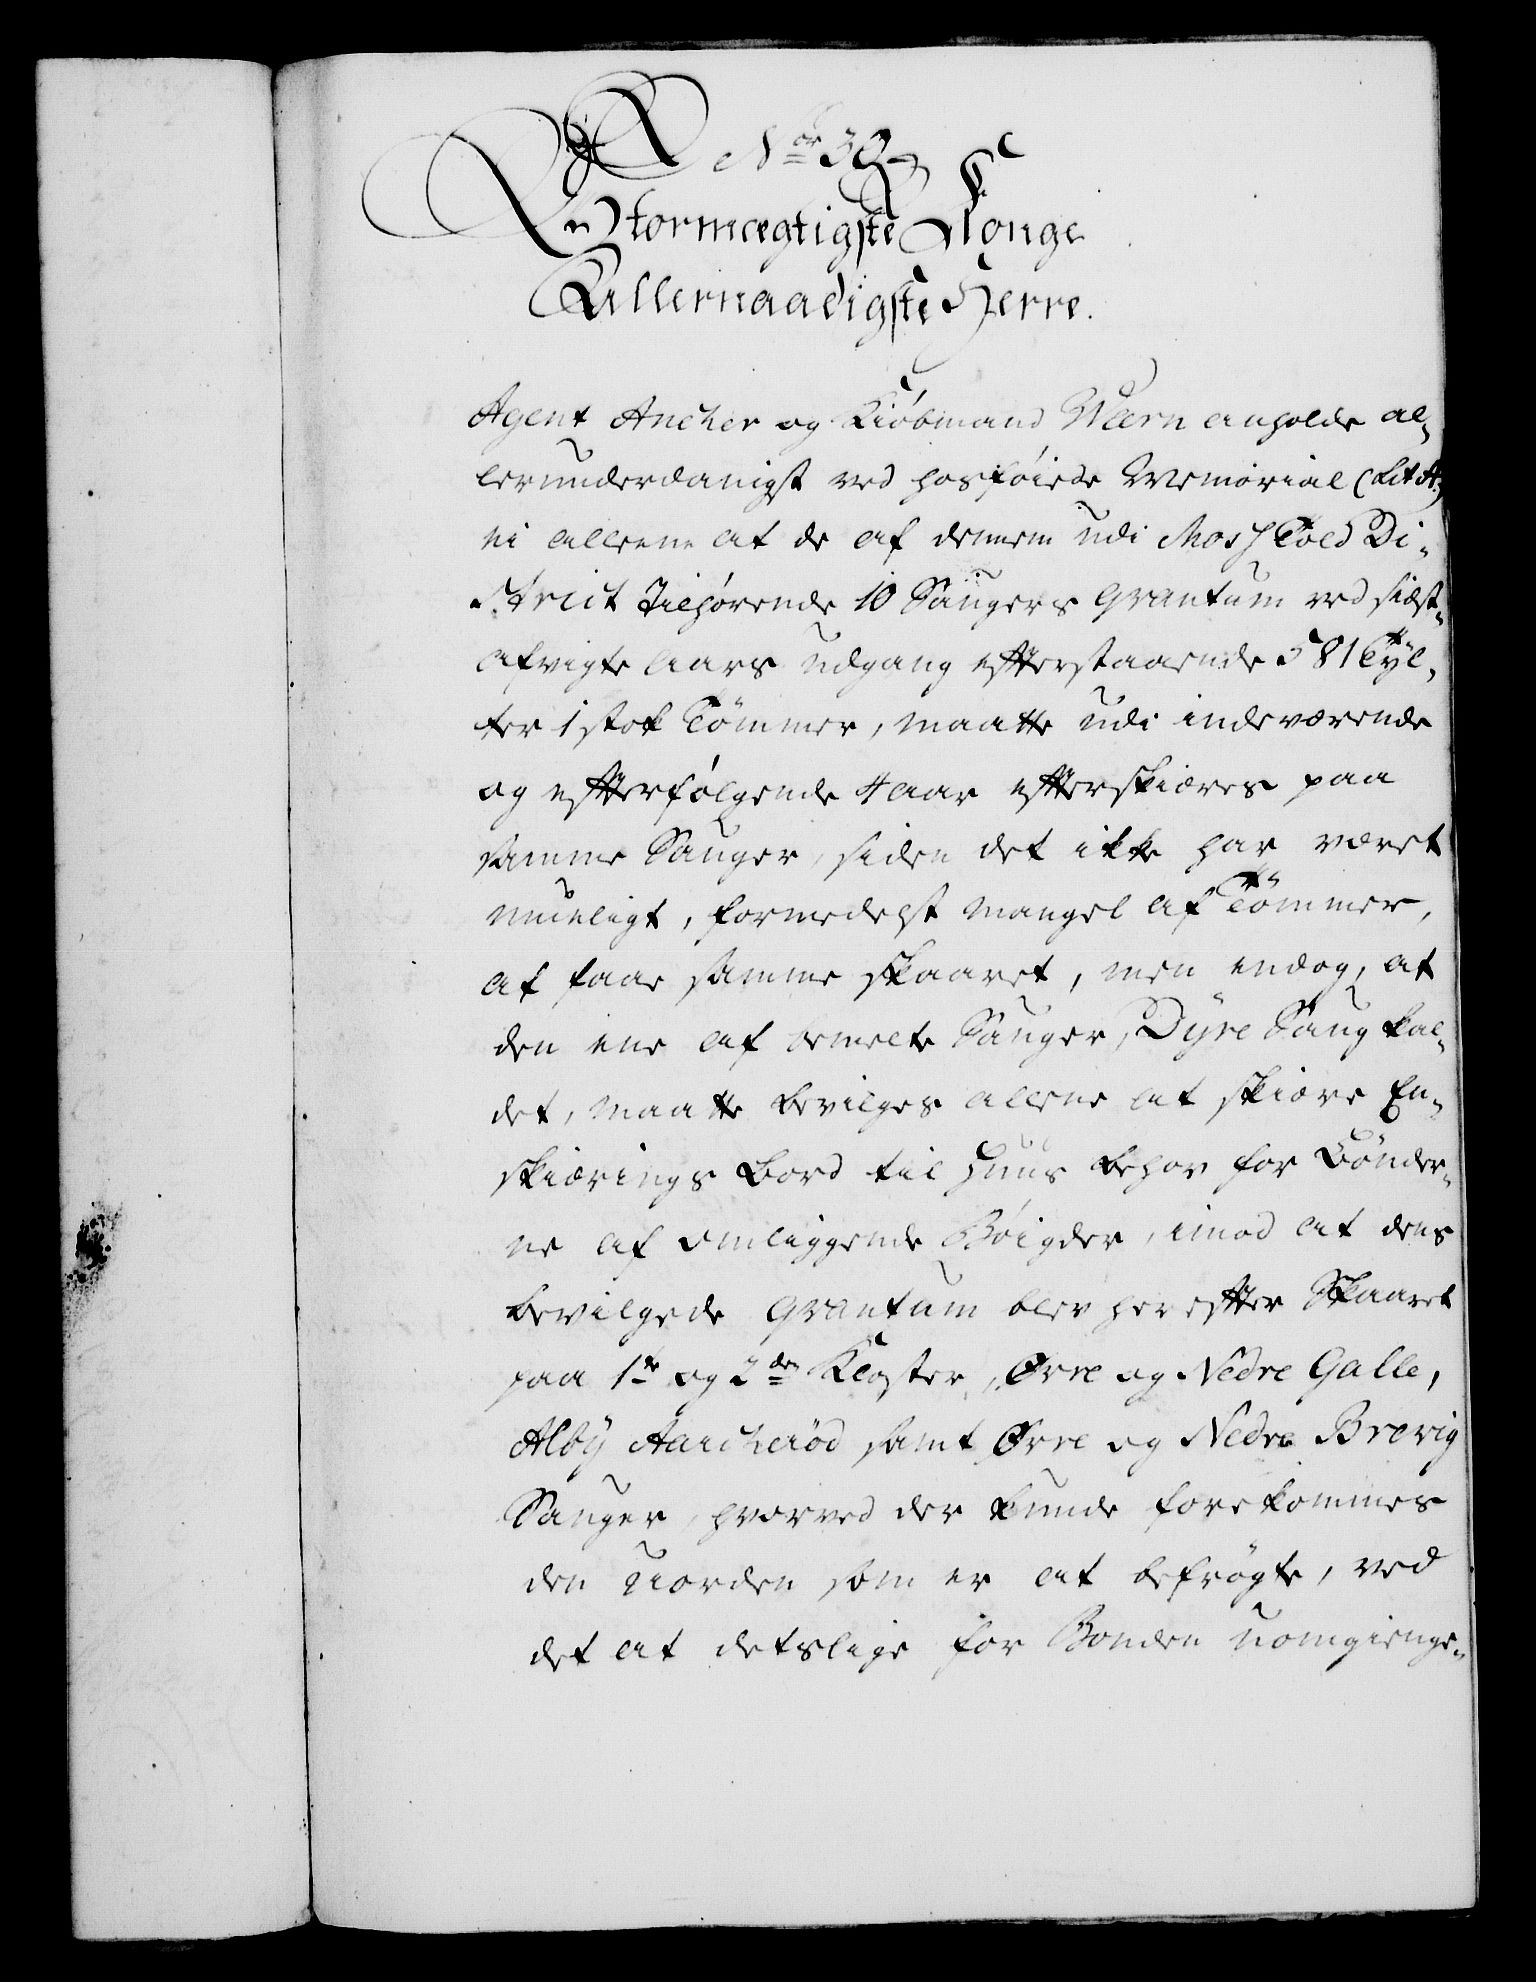 Nor 30.
Stormægtigste Konge
Allernaadigste Herre.
Agent Ancher og Kiöbmand Wærn anholde al-
lerunderdanigst ved hosföiede Memorial (Lit A.)
ei alleene at de af dennem udi Moss Told Di-
strict Tilhörende 10 Saugers Qvantum ved sidst-
afvigte Aars Udgang efterstaaende 581 Tyl-
ter 1 stok Tömmer, maatte udi indeværende
og efterfölgende 4 Aar efterskiæres paa
samme Sauger, siden det ikke har været
mueligt, formedelst Mangel af Tömmer,
at faae samme skaaret, men endog, at
den ene af bemelte Sauger, Dyre Saug kal-
det, maatte bevilges allene at skiære En-
skiærings Bord til Huus behov for Bönder-
ne af omliggende Böigder, imod at dens
bevilgede Qvantum blev herefter Skaaret
paa 1te og 2den Kloster, Øvre og Nedre Galle,
Alby Aarcheröd samt Øvre og Nedre Brevig
Sauger, hvorved der kunde forekommes
den Uorden som er at befrögte, ved
det at detslige for Bonden uomgienge-